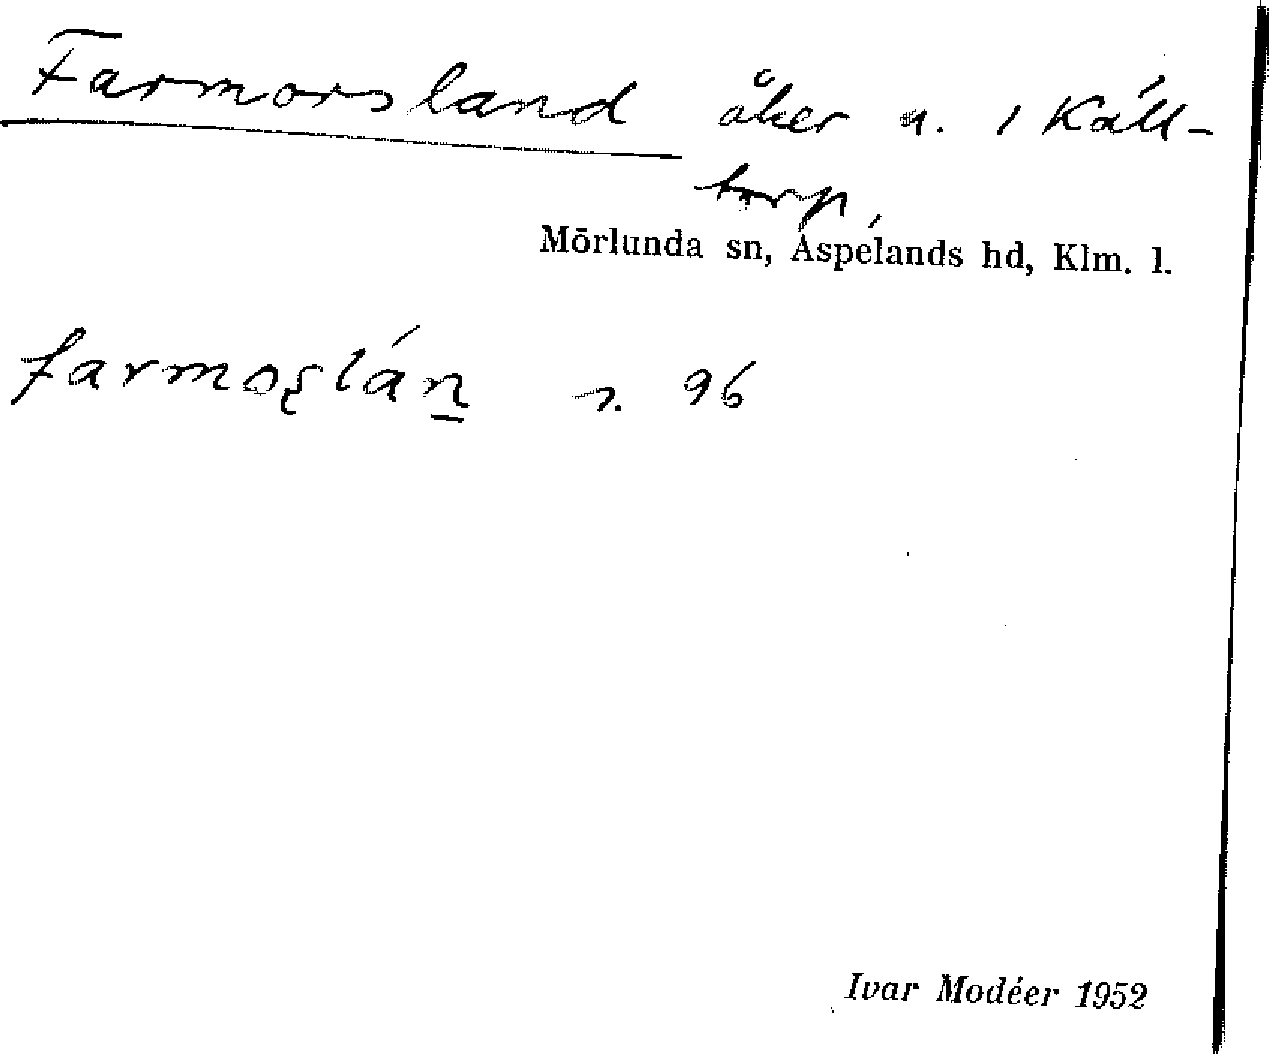 Farmorsland åker n. 1 Käll-
torp,
Mörlunda sn, Aspelands hd, Klm. l.
farmoʂlán̲ s. 96
Ivar Modéer 1952